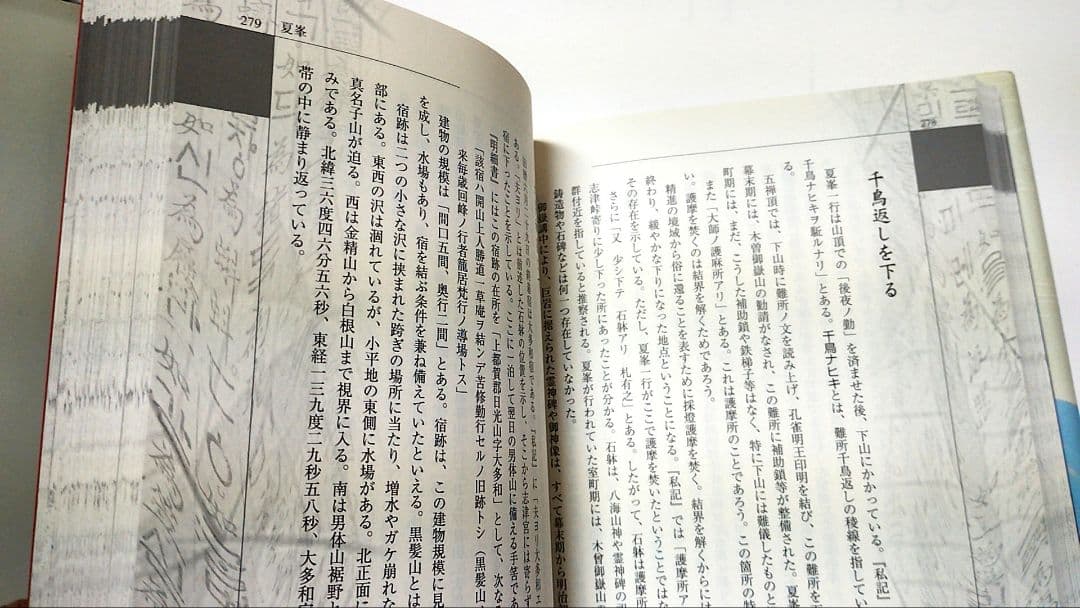 278
千鳥返しを下る
夏峯一行は山頂での「後夜ノ勤」を済ませた後、下山にかかっている。『私記』
千鳥ナヒキヲ駈ルナリ」とある。千鳥ナヒキとは、難所千鳥返しの稜線を指してい
る。
五禅頂では、下山時に難所ノ文を読み上げ、孔雀明王印明を結び、この難所を
幕末期には、木曽御嶽山の勧請がなされ、この難所に補助鎖等が整備された。夏
町期には、まだ、こうした補助鎖や鉄梯子等はなく、特に下山には難儀したものと
また「大師ノ護麻所アリ」とある。これは護摩所のことであろう。この箇所の特
い。護摩を焚くのは結界を解くためであろう。
精進の境域から俗に還ることを表すために採燈護摩を焚く。結界を解くからには
終わり、緩やかな下りになった地点ということになる。『私記』では「護摩所ア
その存在を示している。ただし、夏峯一行がここで護摩を焚いたということではな
さらに「又 少シ下テ 石躰アリ 札有之」とある。したがって、石躰は護摩所
志津峠寄りに少し下った所にあったことが分かる。石躰は、八海山神や霊神碑の
群付近を指していると推察される。夏峯が行われていた室町期には、木曽御嶽山
鋳造物や石碑などは何一つ存在していなかった。
御嶽講中により、巨岩に据えられた霊神碑や御神像は、すべて幕末期から明治
279
夏峯
ある。「夫ヨリ」とは前述した石躰の位置を示し、そこから志津宮には寄らず
宿に下ったことを示している。ここに一泊して翌日の男体山に備える手筈であ
『明細書』にはこの宿跡の在所を「上都賀郡日光山字大多和」として、次なる
「該宿ハ開山上人勝道一草庵ヲ結ンデ苦修勤行セルノ旧跡トシ（黒髪山
来毎歳回峰ノ行者籠居梵行ノ導場トス」
建物の規模は「間口五間、奥行二間」とある。宿跡は、この建物規模に見
を成し、水場もあり、宿を結ぶ条件を兼ね備えていたといえる。黒髪山とは
宿跡は二つの小さな沢に挟まれた跨ぎの場所に当たり、増水やガケ崩れな
部にある。東西の沢は涸れているが、小平地の東側に水場がある。北正面に
真名子山が迫る。西は金精山から白根山まで視界に入る。南は男体山裾野と
みである。北緯三六度四六分五六秒、東経一三九度二九秒五八秒、大多和宿
帯の中に静まり返っている。